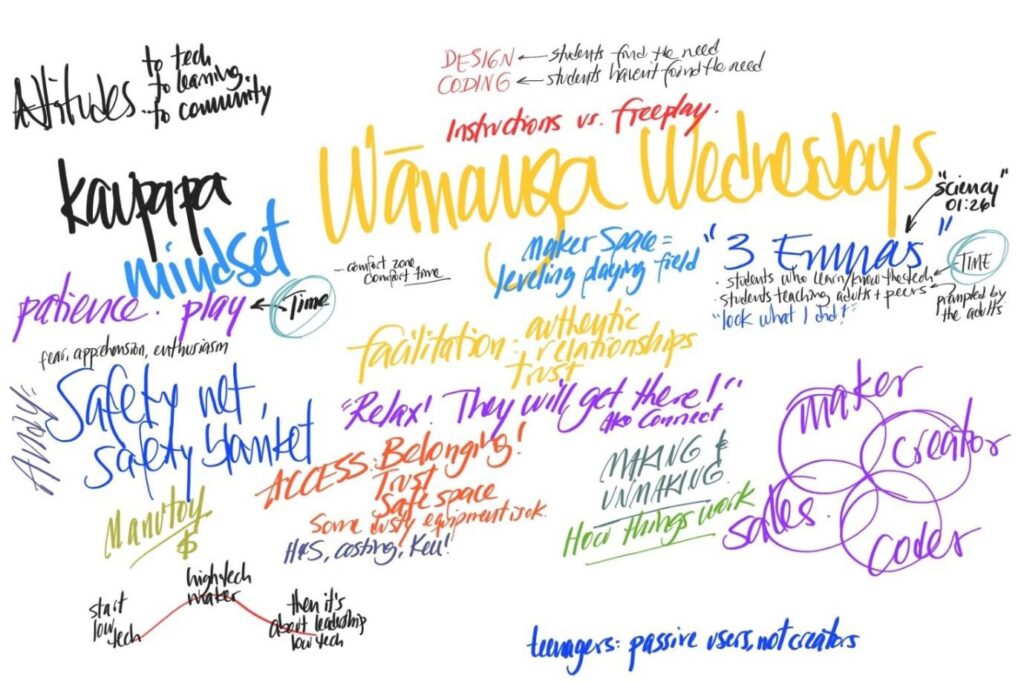 Attitudes
to tech
to learning.
to community
DESIGN ← students find the need
CODING ← students haven't found the need
Instructions vs. freeplay.
Wānanga Wednesdays
kaupapa
mindset
patience. play ← Time
- comfort zone
comfort time
fear, apprehension, enthusiasm
Maker Space =
leveling playing field
"3 Emmas"
"Sciency"
01:26
· students who learn/know the tech
· students teaching adults + peers
"look what I did!"
TIME
prompted by
the adults
facilitation: authentic
relationships
trust
Andy:
Safety net,
safety blanket
"Relax! They will get there!"
Ako Connect
ACCESS: Belonging!
Trust
Safe space
Some dusty equipment is ok.
H&S, costing,
MAKING &
UNMAKING
How things work
maker
creator
sales.
coder
$
start
low
tech
high tech
maker
then it's
about leadership
low tech
teenagers: passive users, not creators